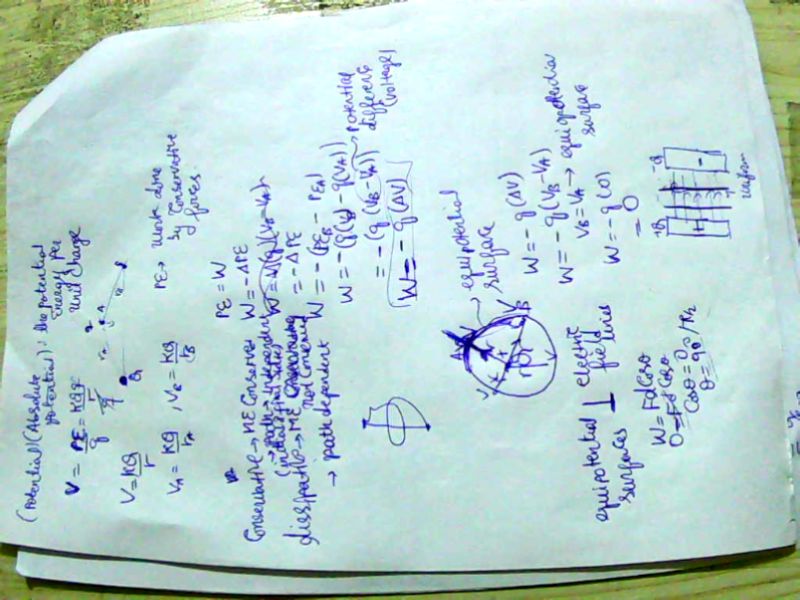 (Potential)(Absolute potential): the potential
Energy Per
unit charge
V = PE/q = KQq/r/q
V = KQ/r
V_A = KQ/r_A , V_B = KQ/r_B
PE → work done
by conservative
forces
Conservative → ME Conserves
→ path independent
(initial, final states)
dissipative → ME
not conserved
→ path dependent
PE = W
W = -ΔPE
= -ΔPE
W = -(PE_B - PE_A)
W = -(q(V_B) - q(V_A))
= -(q(V_B - V_A)) → potential
difference
(voltage)
W = -q(ΔV)
A
B
→ equipotential
surface
W = -q(ΔV)
W = -q(V_B - V_A)
V_B = V_A → equipotential
surface
W = -q(0)
= 0
equipotential ⊥ electric
surfaces field lines
W = Fdcosθ
0 = Fdcosθ
cosθ = 0
θ = 90°
+Q -Q
uniform